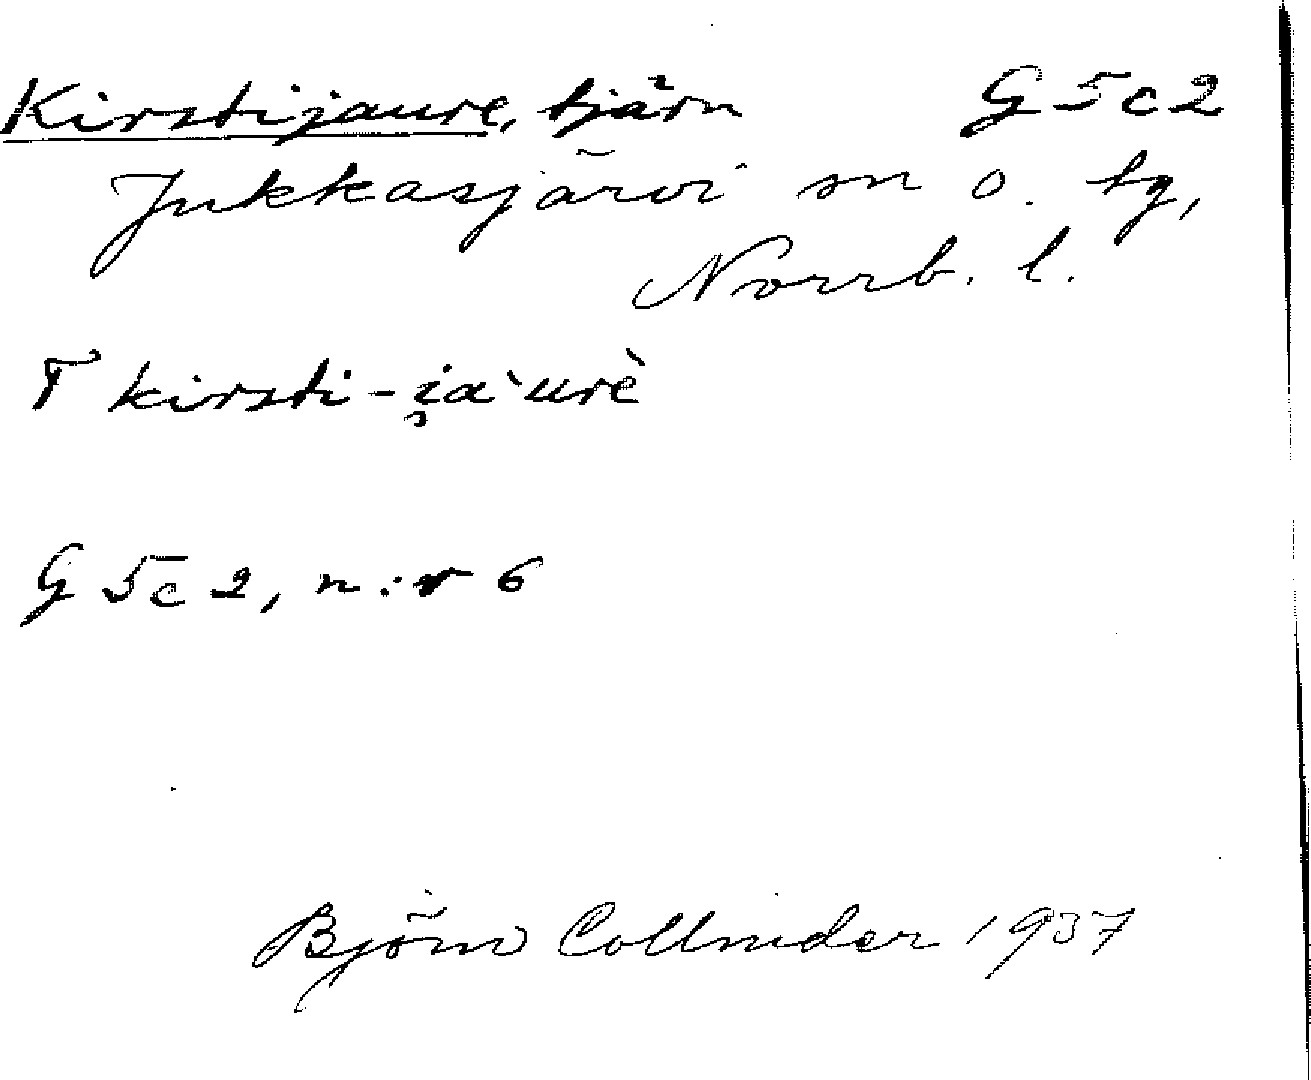 Kirstijaure, tjärn G 5 c 2
Jukkasjärvi sn o. tg,
Norrb. l.
T kirsti-i̯a`urè
G 5 c 2, n:r 6
Björn Collinder 1937